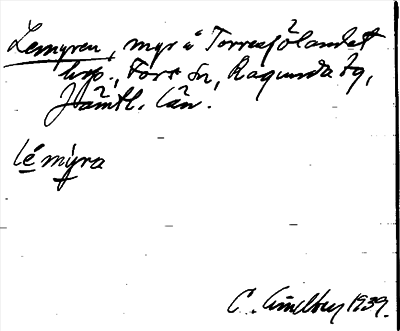 Lemyren, myr å Torresjölandet
krp., Fors sn, Ragunda tg,
Jämtl. län.
lémỳra
C. Lindberg 1939.